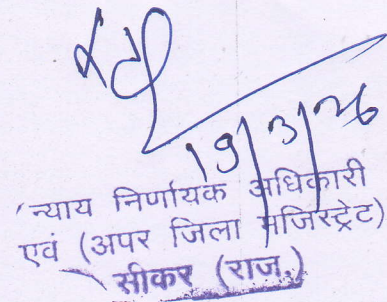 19/3/26
न्याय निर्णायक अधिकारी
एवं (अपर जिला मजिस्ट्रेट)
सीकर (राज.)